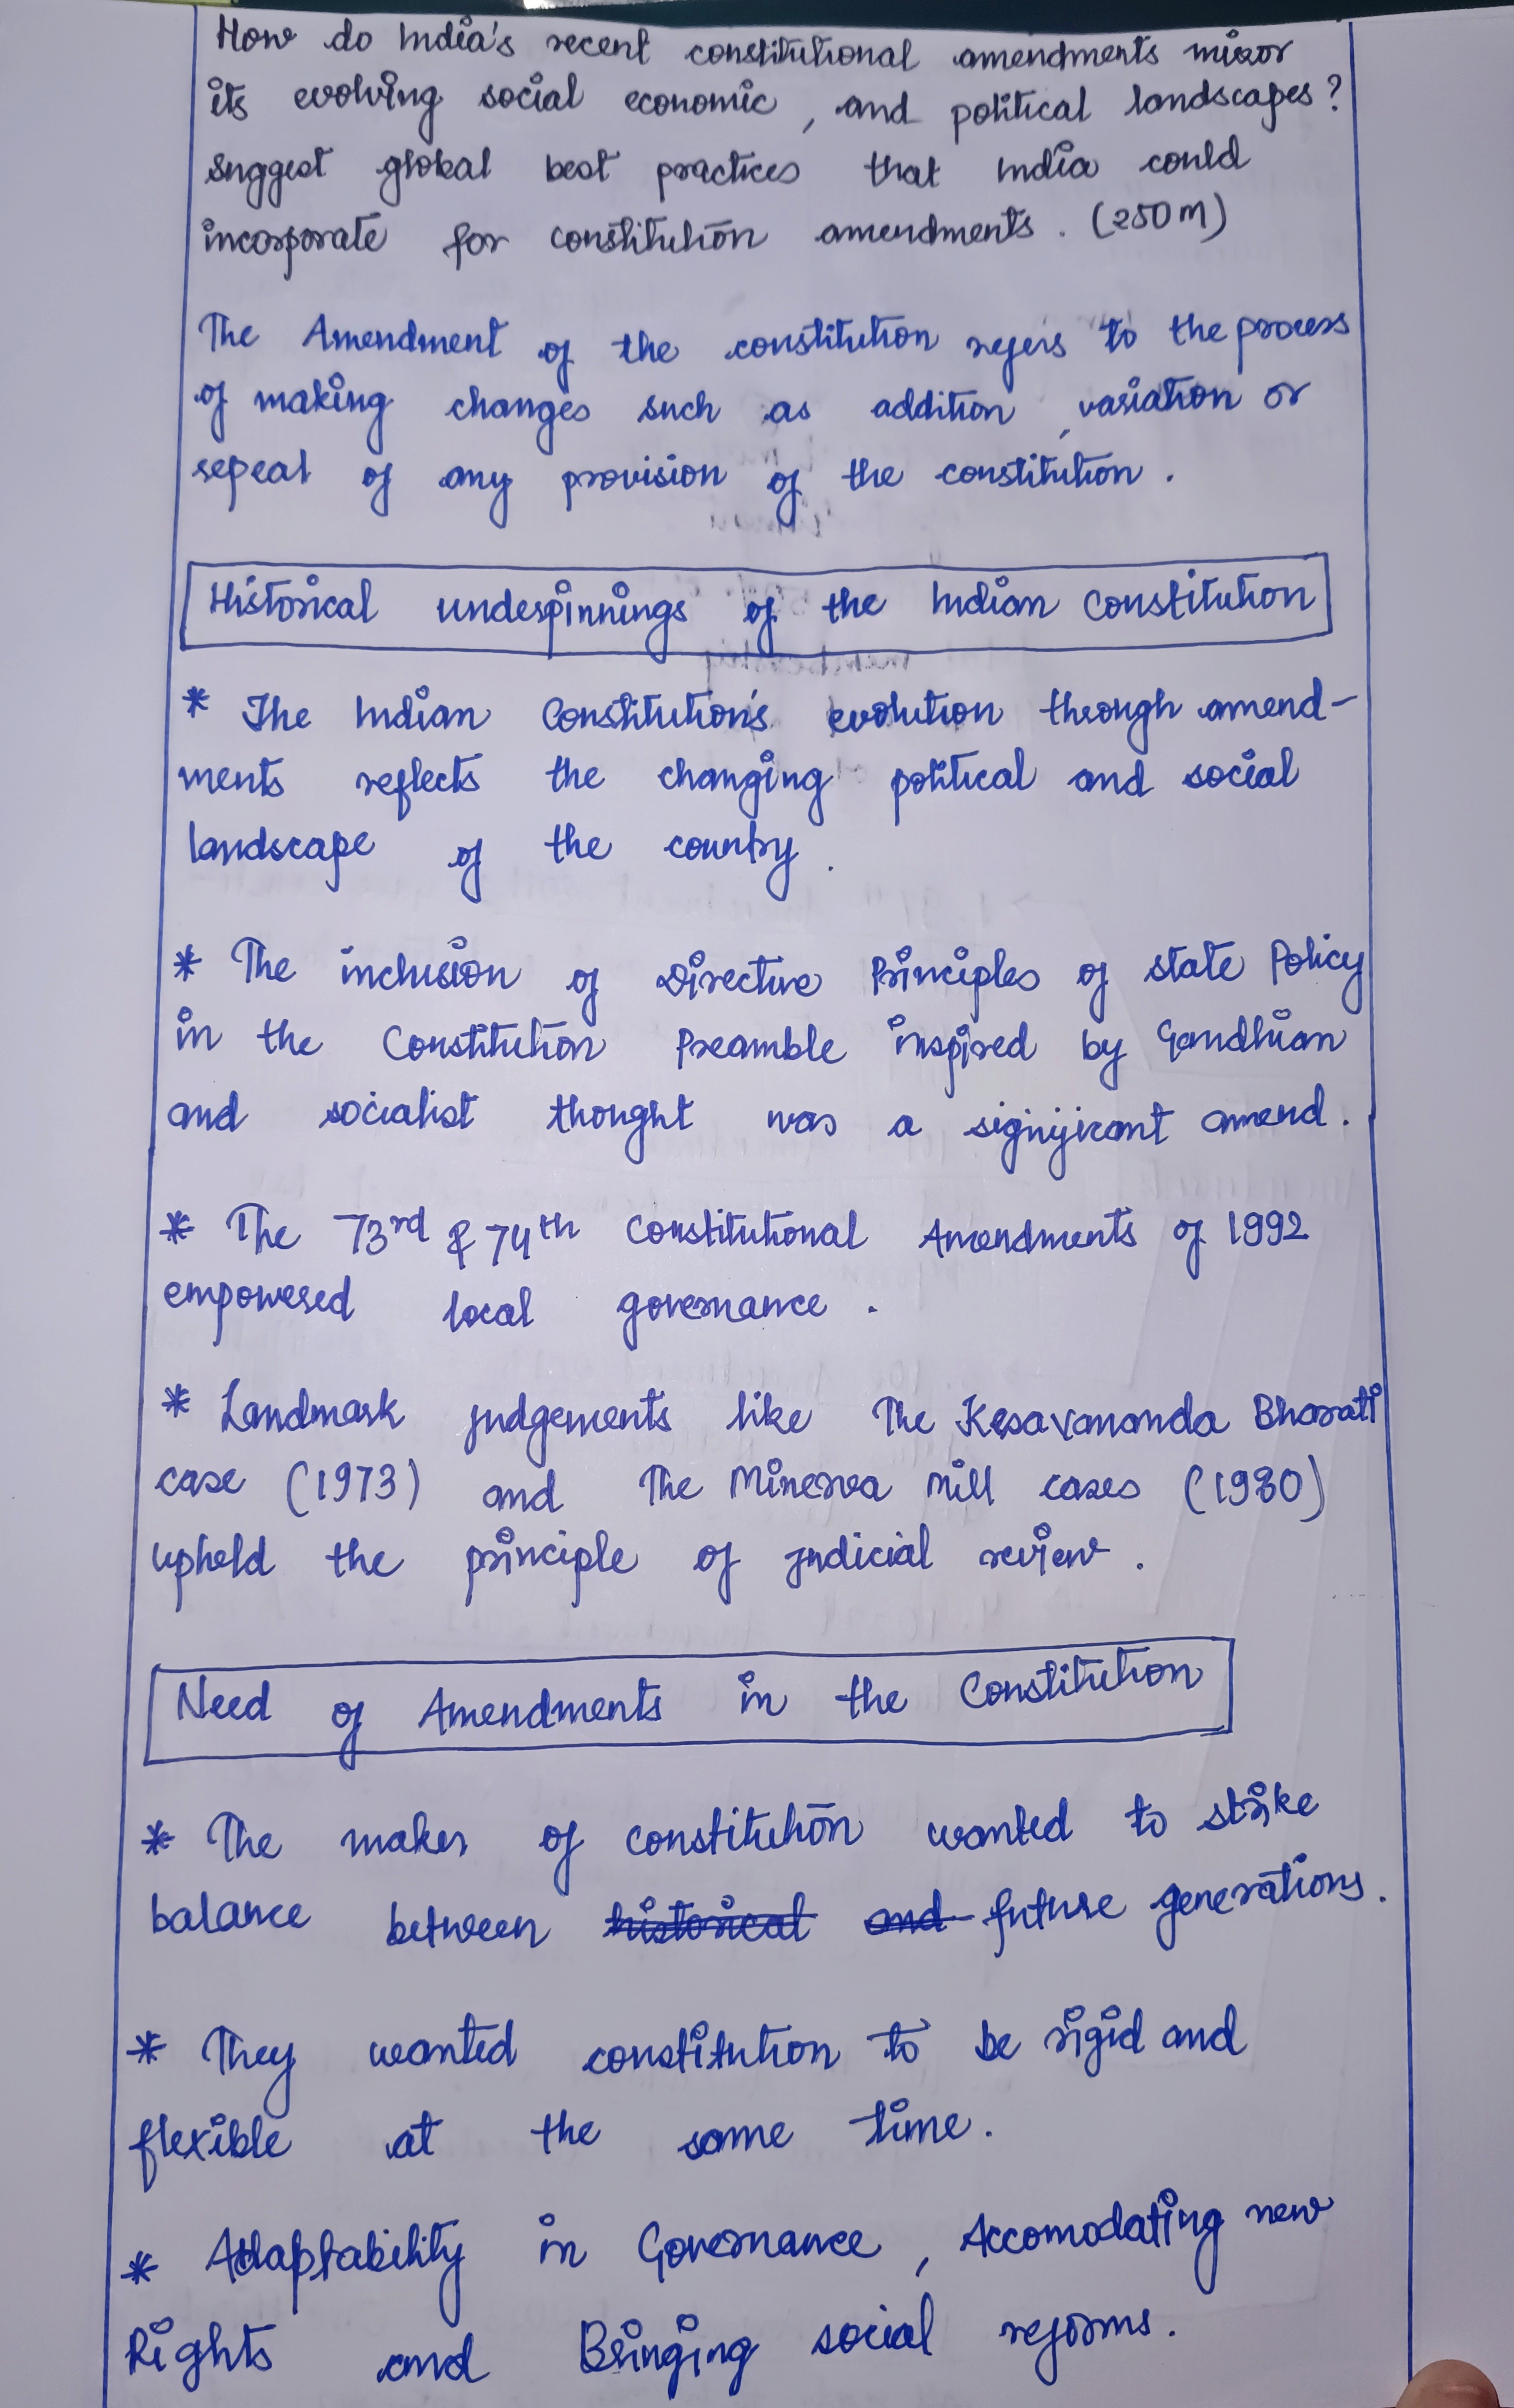 How do India's recent constitutional amendments mirror
its evolving social economic, and political landscapes?
suggest global best practices that India could
incorporate for constitution amendments. (250M)
The Amendment of the constitution refers to the process
of making changes such as addition, variation or
repeal of any provision of the constitution.
Historical underpinnings of the Indian Constitution
* The Indian Constitution's evolution through amend-
ments reflects the changing political and social
landscape of the country.
* The inclusion of Directive Principles of state Policy
in the Constitution Preamble inspired by Gandhian
and socialist thought was a significant amend.
* The 73rd & 74th Constitutional Amendments of 1992
empowered local governance.
* Landmark judgements like The Kesavananda Bharati
case (1973) and The Minerva Mill cases (1980)
upheld the principle of judicial review.
Need of Amendments in the Constitution
* The maker of constitution wanted to strike
balance between historical and future generations.
* They wanted constitution to be rigid and
flexible at the same time.
* Adaptability in Governance, Accomodating new
Rights and Bringing social reforms.